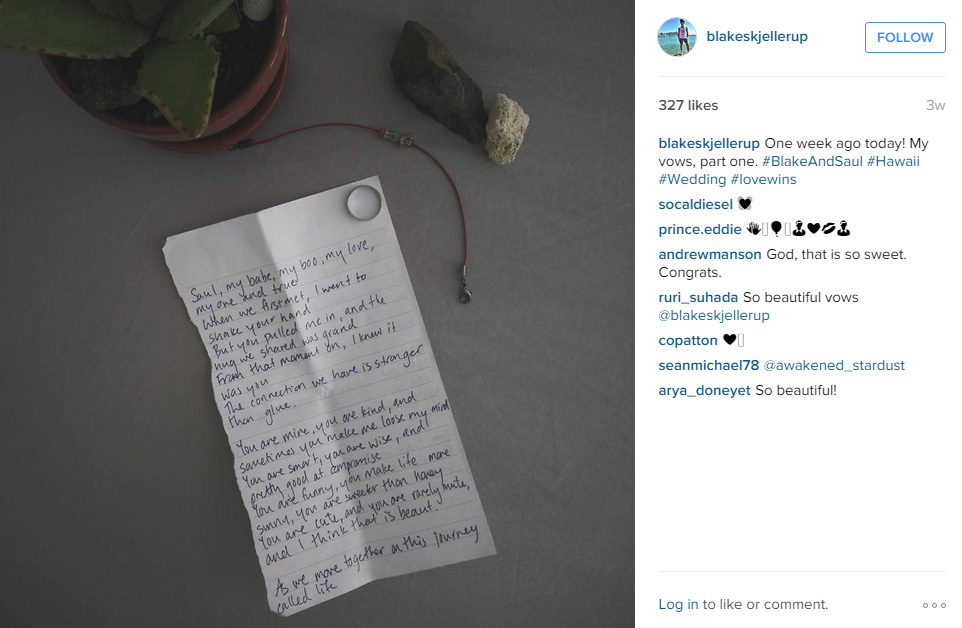 Saul, my babe, my boo, my love,
my one and true
When we first met, I went to
shake your hand
But you pulled me in, and the
hug we shared was grand
From that moment on, I knew it
was you
The connection we have is stronger
than glue.
You are mine, you are kind, and
sometimes you make me loose my mind
You are smart, you are wise, and
pretty good at compromise
You are funny, you make life more
sunny, you are sweeter than honey
You are cute, and you are rarely mute,
and I think that is beaut.
As we move together on this journey
called life
blakeskjellerup
FOLLOW
327 likes
3w
blakeskjellerup One week ago today! My
vows, part one. #BlakeAndSaul #Hawaii
#Wedding #lovewins
socaldiesel
prince.eddie
andrewmanson God, that is so sweet.
Congrats.
ruri_suhada So beautiful vows
@blakeskjellerup
copatton
seanmichael78 @awakened_stardust
arya_doneyet So beautiful!
Log in to like or comment.